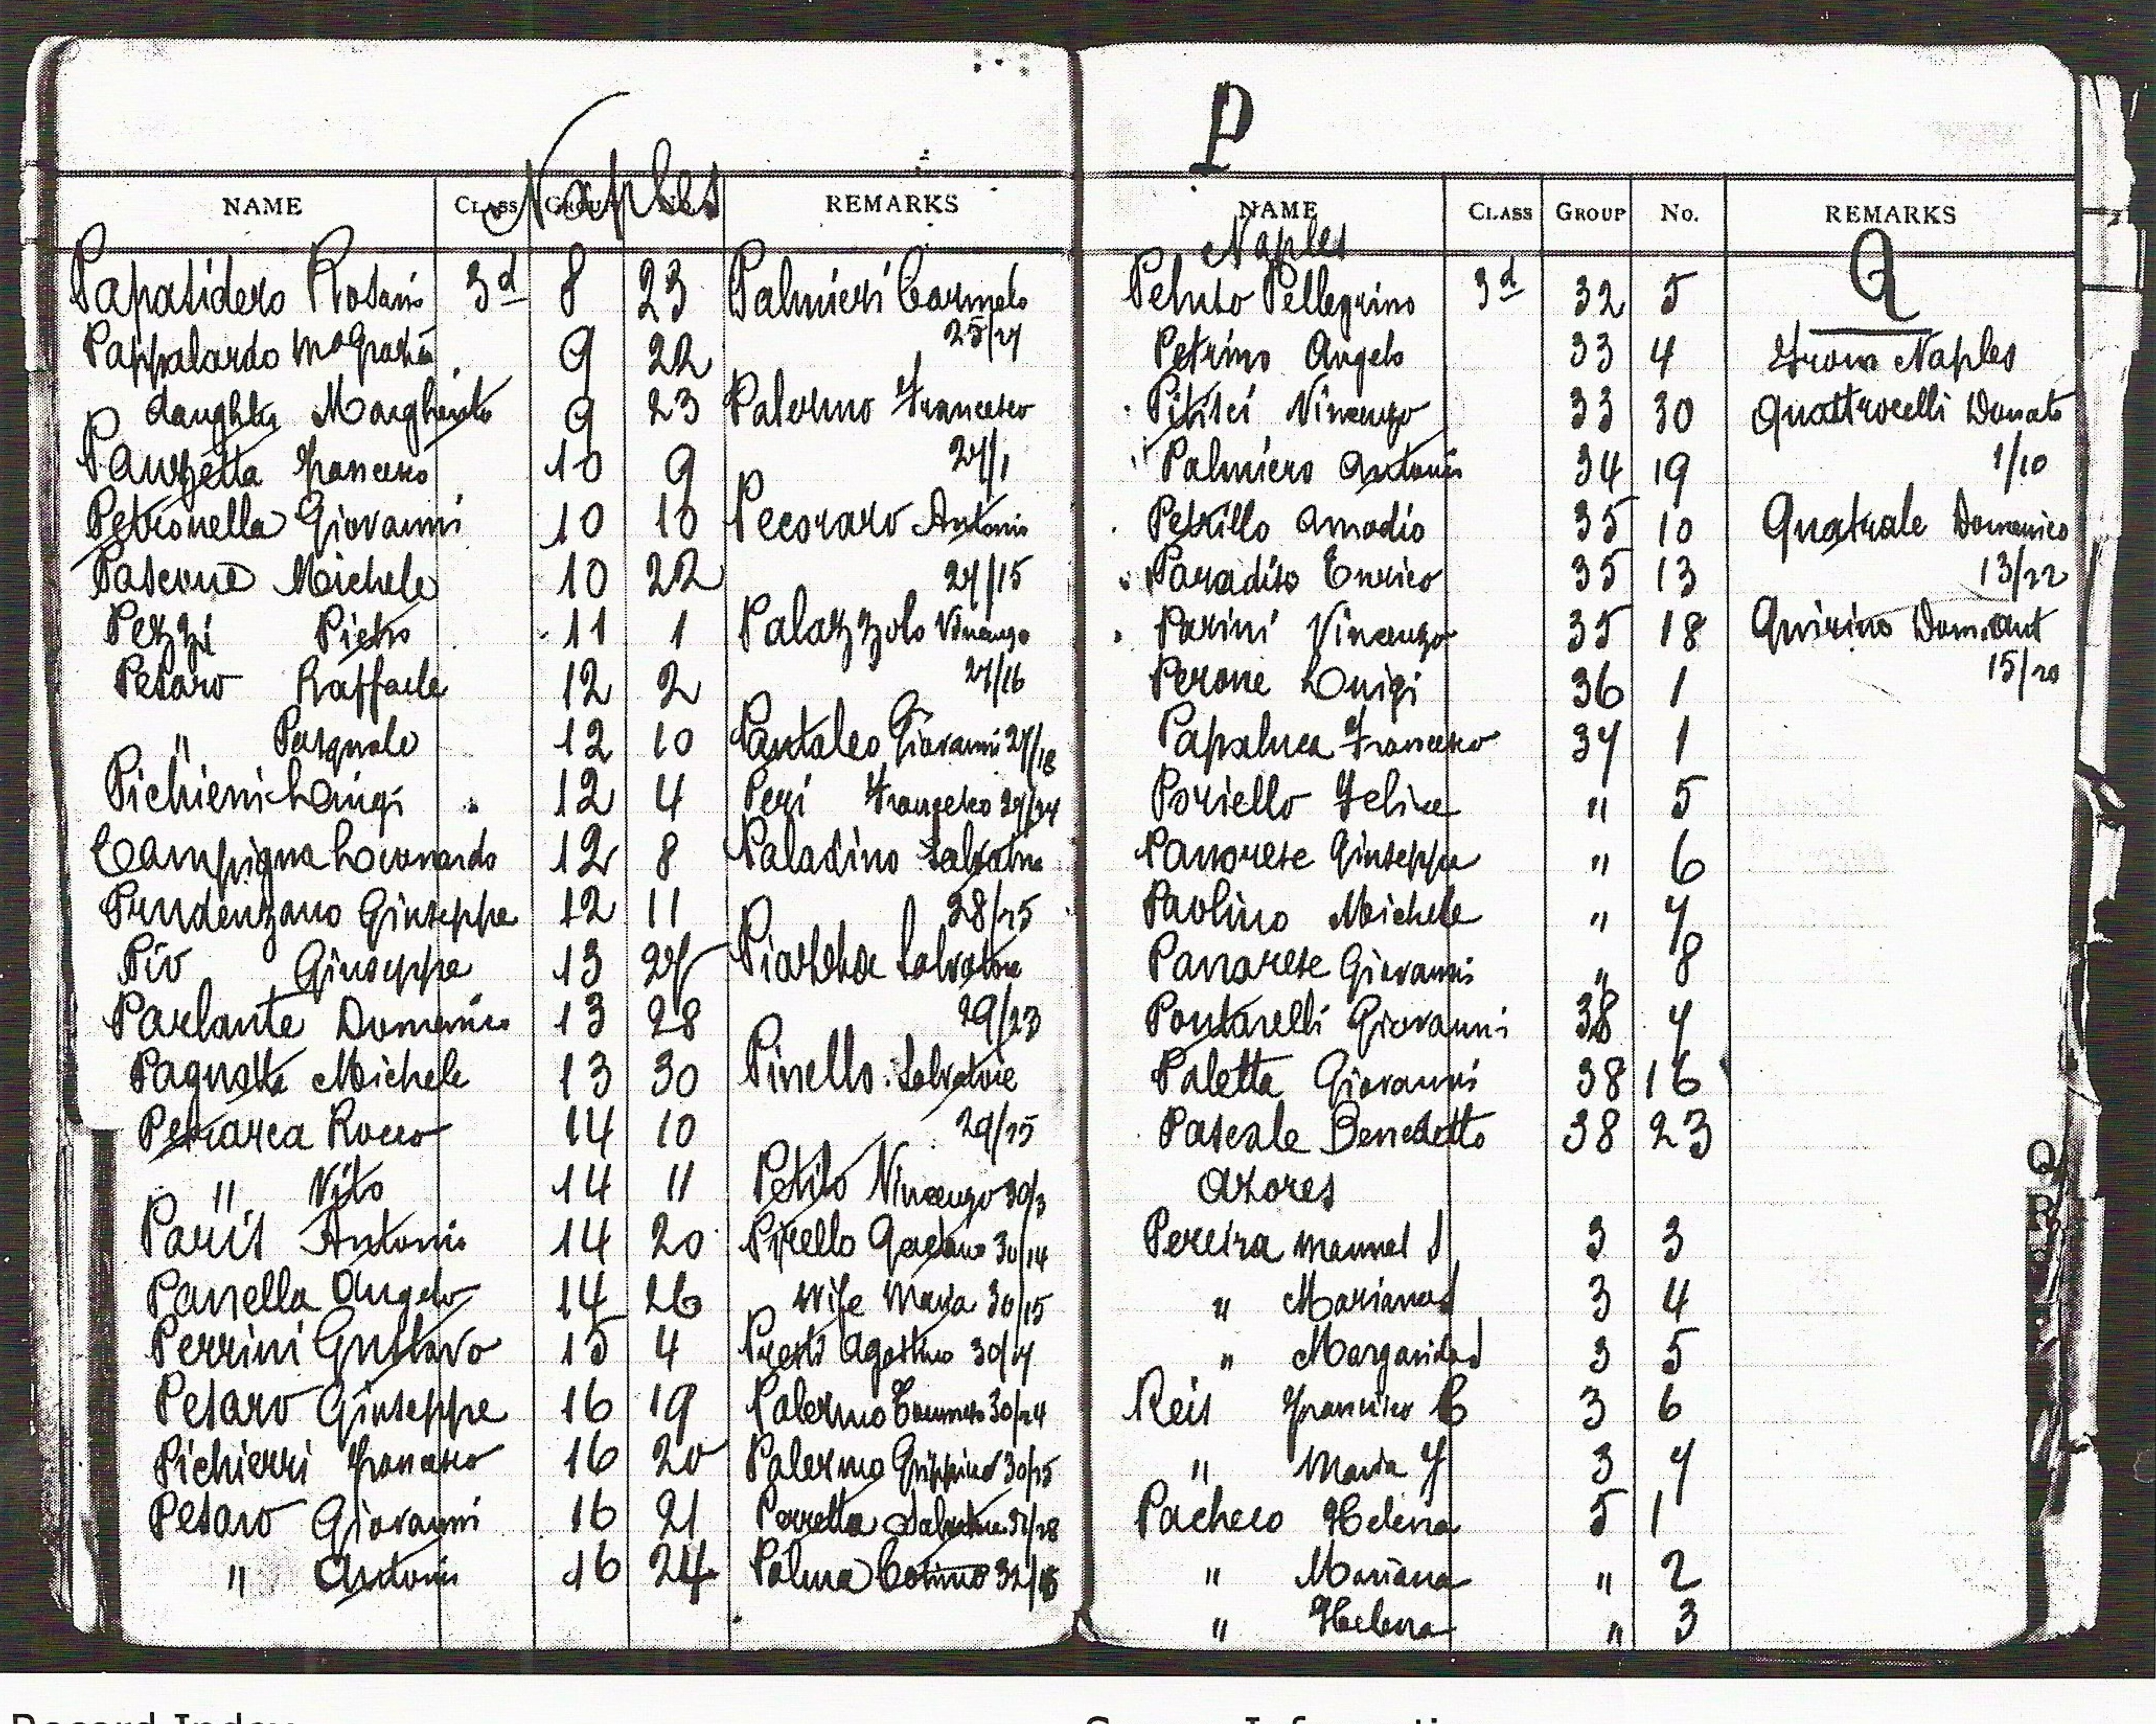 P
Naples
NAME CLASS GROUP No. REMARKS
Papasidero Rosario 3d 8 23 Palmieri Carmelo
25/27
Pappalardo Ma Grazia 9 22
daughter Margherita 9 23 Palermo Francesco
27/1
Panzetta Francesco 10 9
Petronella Giovanni 10 10 Pecoraro Antonio
27/15
Pascone Michele 10 22
Pezzi Pietro 11 1 Palazzolo Vincenzo
27/16
Pesaro Raffaele 12 2
" Pasquale 12 10 Pantaleo Giovanni 27/18
Pichierri Luigi 12 4 Peri Francesco 27/24
Campigna Leonardo 12 8 Paladino Salvatore
28/25
Prudenzano Giuseppe 12 11
Pio Giuseppe 13 27 Piazza Salvatore
29/23
Parlante Domenico 13 28
Pagnotta Michele 13 30 Pinello Salvatore
29/25
Petrarca Rocco 14 10
" Vito 14 11 Petito Vincenzo 30/3
Paris Antonio 14 20 Pirello Gaetano 30/14
Panella Angelo 14 26 wife Maria 30/15
Perrini Gustavo 15 4 Presti Agostino 30/17
Pesaro Giuseppe 16 19 Palermo 30/24
Pichierri Francesco 16 20 Palermo 30/25
Pesaro Giovanni 16 21 Porretta Salvatore
" Antonio 16 24 Palma Cosimo
NAME CLASS GROUP No. REMARKS
Naples
Q
Peluso Pellegrino 3d 32 5
Petrino Angelo 33 4 From Naples
Pitisci Vincenzo 33 30 Quattrocelli Donato
1/10
Palmiero Antonio 34 19
Petrillo Amodio 35 10 Quatrale Domenico
13/22
Paradiso Enrico 35 13
Parini Vincenzo 35 18 Quirino Dom. Ant
15/20
Perone Luigi 36 1
Papaluca Francesco 37 1
Poriello Felice " 5
Panarese Giuseppe " 6
Paolino Michele " 7
Panarese Giovanni " 8
Pontarelli Giovanni 38 7
Paletta Giovanni 38 16
Pascale Benedetto 38 23
Azores
Pereira Manuel J 3 3
" Mariana J 3 4
" Margarida J 3 5
Reis Francisco C 3 6
" Maria J 3 7
Pacheco Helena 5 1
" Mariana " 2
" Helena " 3
Q
R